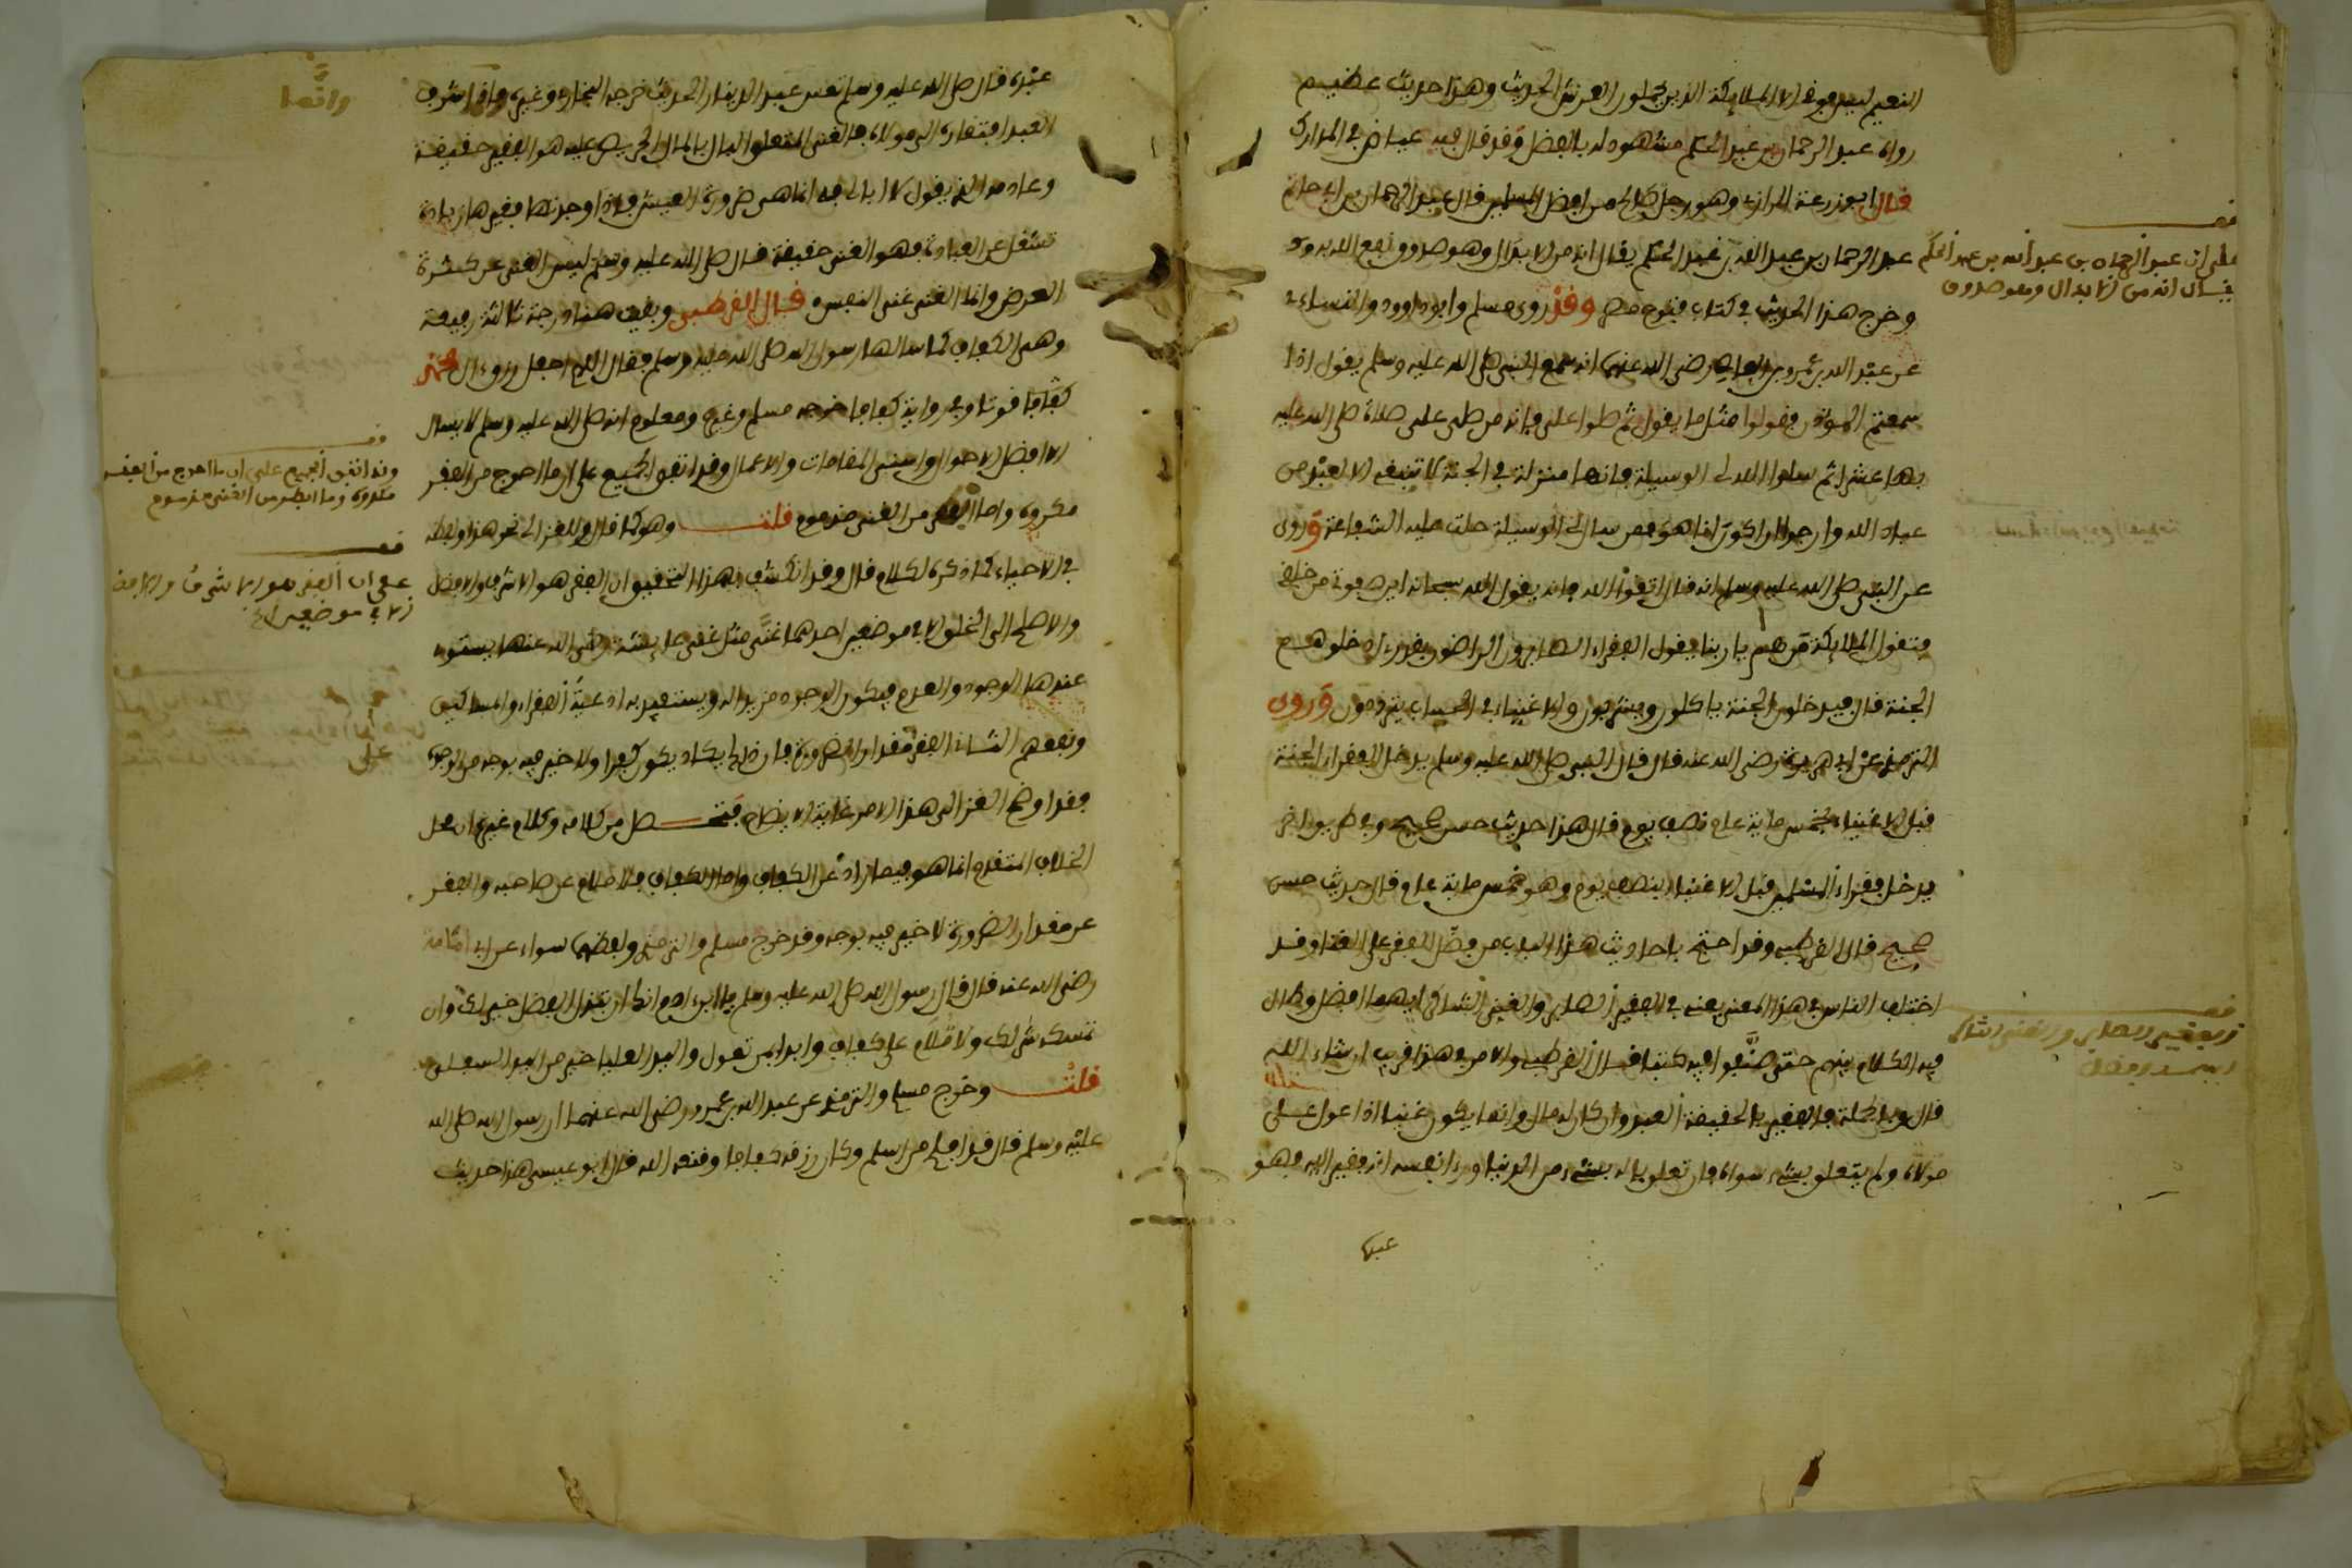 النعيم ليس فوقه الا الملايكة الذين يحملون العرش الحديث وهذا حديث عظيم
رواه عبد الرحمان بن عبد الحكم مشهود له بالفضل وقد قال فيه عياض في المدارك
قال ابو زرعة الرازي وهو رجل صالح من افضل المسلمين قال عبد الرحمان بن ابي حاتم
عبد الرحمان بن عبد الله بن عبد الحكم يقال انه من الابدال وهو صدوق نفع الله به
وخرج هذا الحديث في كتاب فتوح مصر وقد روى مسلم وابو داوود والنساءي
عن عبد الله بن عمرو بن العاصي رضي الله عنهما انه سمع النبي صلى الله عليه وسلم يقول اذا
سمعتم الموذن فقولوا مثل ما يقول ثم صلوا علي فانه من صلى علي صلاة صلى الله عليه
بها عشرا ثم سلوا الله لي الوسيلة فانها منزلة في الجنة لا تنبغي الا لعبد من
عباد الله وارجوا ان اكون انا هو فمن سال لي الوسيلة حلت عليه الشفاعة وروى
عن النبي صلى الله عليه وسلم انه قال اتقوا الله فانه يقول الله سبحانه اين صفوتي من خلقي
فتقول الملايكة من هم يا ربنا فيقول الفقراء الصابرون الراضون بقدري ادخلوهم
الجنة قال فيدخلون الجنة ياكلون ويشربون والاغنياء في الحساب يترددون وروى
الترمذي عن ابي هريرة رضي الله عنه قال قال النبي صلى الله عليه وسلم يدخل الفقراء الجنة
قبل الاغنياء بخمس ماية عام نصف يوم قال هذا حديث حسن صحيح وفي طريق اخر
يدخل فقراء المسلمين قبل الاغنياء بنصف يوم وهو خمس ماية عام وقال حديث حسن
صحيح قال القرطبي وقد احتج باحاديث هذا الباب من فضل الفقر على الغنا وقد
اختلف الناس في هذا المعنى يعني في الفقير الصابر والغني الشاكر ايهما افضل وطال
فيه الكلام بينهم حتى صنفوا فيه كتبا قال القرطبي والامر في هذا قريب ان شاء الله
قال وبالجملة فالفقير بالحقيقة العبد وان كان له مال وانما يكون غنيا اذا عول على
مولاه ولم يتعلق بشيء سواه فان تعلق باله بشيء من الدنيا وراى نفسه انه فقير اليه فهو
عبده
على ان عبد الرحمان بن عبد الله بن عبد الحكم
يقال انه من الابدال وهو صدوق
الفقير الصابر والغني الشاكر
ايهما افضل
عبده قال صلى الله عليه وسلم تعس عبد الدينار الحديث خرجه البخاري وغيره وانما شرف
العبد افتقاره الى مولاه فالغني المتعلق البال بالمال الحريص عليه هو الفقير حقيقة
وعادمه الذي يقول لا ابالي به انما هي ضرورة العيش فاذا وجدتها فغيرها زيادة
تشغل عن العبادة فهو الغني حقيقة قال صلى الله عليه وسلم ليس الغنى عن كثرة
العرض وانما الغنى غنى النفس قال القرطبي وبقيت هنا درجة ثالثة رفيعة
وهي الكفاف كما سالها رسول الله صلى الله عليه وسلم فقال اللهم اجعل رزق ال محمد
كفافا قوتا وفي رواية كفافا خرجه مسلم وغيره ومعلوم انه صلى الله عليه وسلم لا يسال
الا افضل الاحوال واسنى المقامات والاعمال وقد اتفق الجميع على ان ما احوج من الفقر
مكروه وما ابطر من الغنى مذموم قلت وهو كما قال وللغزالي نحو هذا ولفظه
في الاحياء كما ذكره لكلام قال وقد انكشف بهذا التحقيق ان الفقر هو الاشرف والافضل
والاصلح الى الخلق الا في موضعين احدهما غنى مثل غنى عايشة رضي الله عنها يستوي
عندها الوجود والعدم فيكون الوجود مزيدا له ويستفيد به ادعية الفقراء والمساكين
ونفعهم الثاني الفقر مقدار الضرورة فان ذلك يكاد يكون كفرا ولا خير فيه بوجه من الوجوه
فقد اوضح الغزالي هذا الامر غاية الايضاح فتحصل من كلامه وكلام غيره ان محل
الخلاف المتقدم انما هو فيما زاد عن الكفاف واما الكفاف فلا ملام عن صاحبه والفقر
عن مقدار الضرورة لا خير فيه بوجه وقد خرج مسلم والترمذي ولفظهما سواء عن ابي امامة
رضي الله عنه قال قال رسول الله صلى الله عليه وسلم يا ابن ادم انك ان تبذل الفضل خير لك وان
تمسكه شر لك ولا تلام على كفاف وابدا بمن تعول واليد العليا خير من اليد السفلى
قلت وخرج مسلم والترمذي عن عبد الله بن عمرو رضي الله عنهما ان رسول الله صلى الله
عليه وسلم قال قد افلح من اسلم وكان رزقه كفافا وقنعه الله قال ابو عيسى هذا حديث
وقد اتفق الجميع على ان ما احوج من الفقر
مكروه وما ابطر من الغنى مذموم
على ان الفقر هو الاشرف والافضل
الا في موضعين الخ